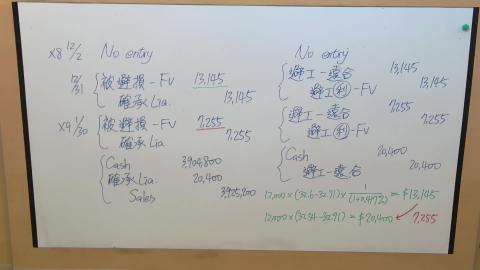 x8 12/2 No entry No entry
12/31 被避損-FV 13,145 避工-遠合 13,145
確承Lia. 13,145 避工(利)-FV 13,145
x9 1/30 被避損-FV 7,255 避工-遠合 7,255
確承Lia. 7,255 避工(利)-FV 7,255
Cash 3,904,800 Cash 20,400
確承Lia. 20,400 避工-遠合 20,400
Sales 3,925,200
12,000×(32.6-32.71)× 1/(1+0.417%) = $13,145
12,000×(32.54-32.71) = $20,400 7,255